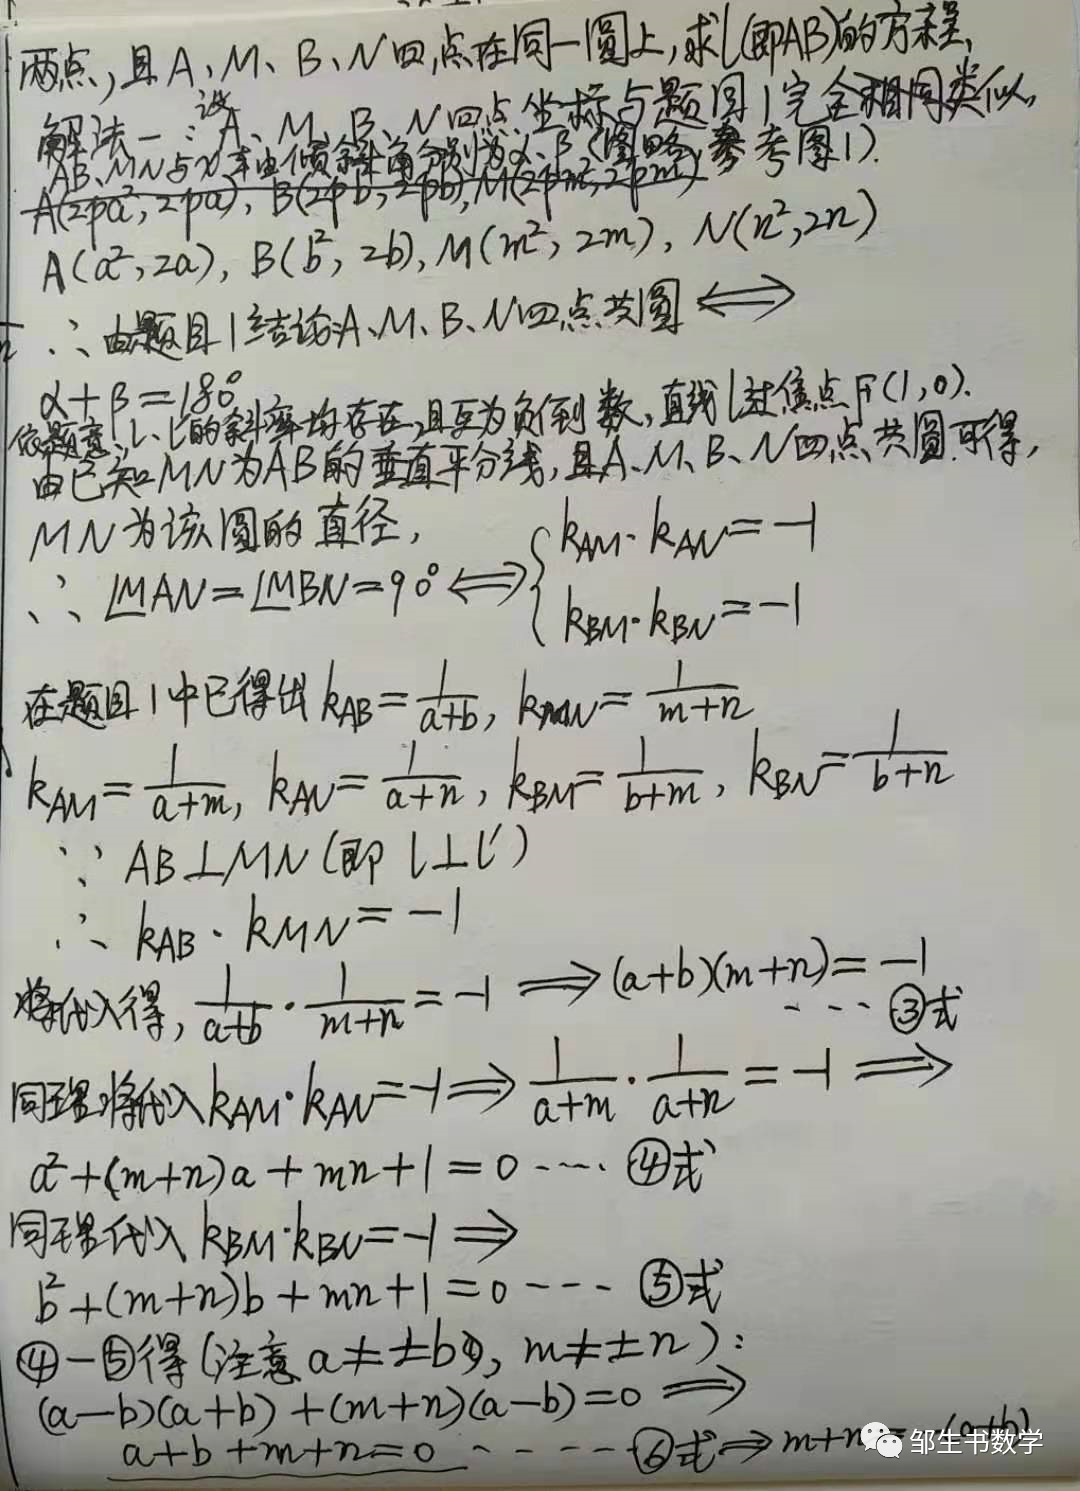 两点,且A、M、B、N四点在同一圆上,求l(即AB)的方程,
解法一:设A、M、B、N四点坐标与题目1完全相同类似,
AB、MN与x轴由倾斜角分别为α、β(图略,参考图1).
A(2pa²,2pa), B(2pb,2pb), M(2pm²,2pm)
A(a²,2a), B(b²,2b), M(m²,2m), N(n²,2n)
∴由题目1结论:A、M、B、N四点共圆⟺
α+β=180°
依题意,l、l'的斜率均存在,且互为负倒数,直线l过焦点F(1,0).
由已知MN为AB的垂直平分线,且A、M、B、N四点共圆可得,
MN为该圆的直径,
∴∠MAN=∠MBN=90°⟺{k_AM·k_AN=-1
k_BM·k_BN=-1
在题目1中已得出k_AB=1/(a+b), k_MN=1/(m+n)
k_AM=1/(a+m), k_AN=1/(a+n), k_BM=1/(b+m), k_BN=1/(b+n)
∵AB⊥MN(即l⊥l')
∴k_AB·k_MN=-1
将代入得,1/(a+b)·1/(m+n)=-1⟹(a+b)(m+n)=-1
····③式
同理将代入k_AM·k_AN=-1⟹1/(a+m)·1/(a+n)=-1⟹
a²+(m+n)a+mn+1=0····④式
同理代入k_BM·k_BN=-1⟹
b²+(m+n)b+mn+1=0----⑤式
④-⑤得(注意a≠±b, m≠±n):
(a-b)(a+b)+(m+n)(a-b)=0⟹
a+b+m+n=0-----⑥式⟹m+n=-(a+b)
邹生书数学